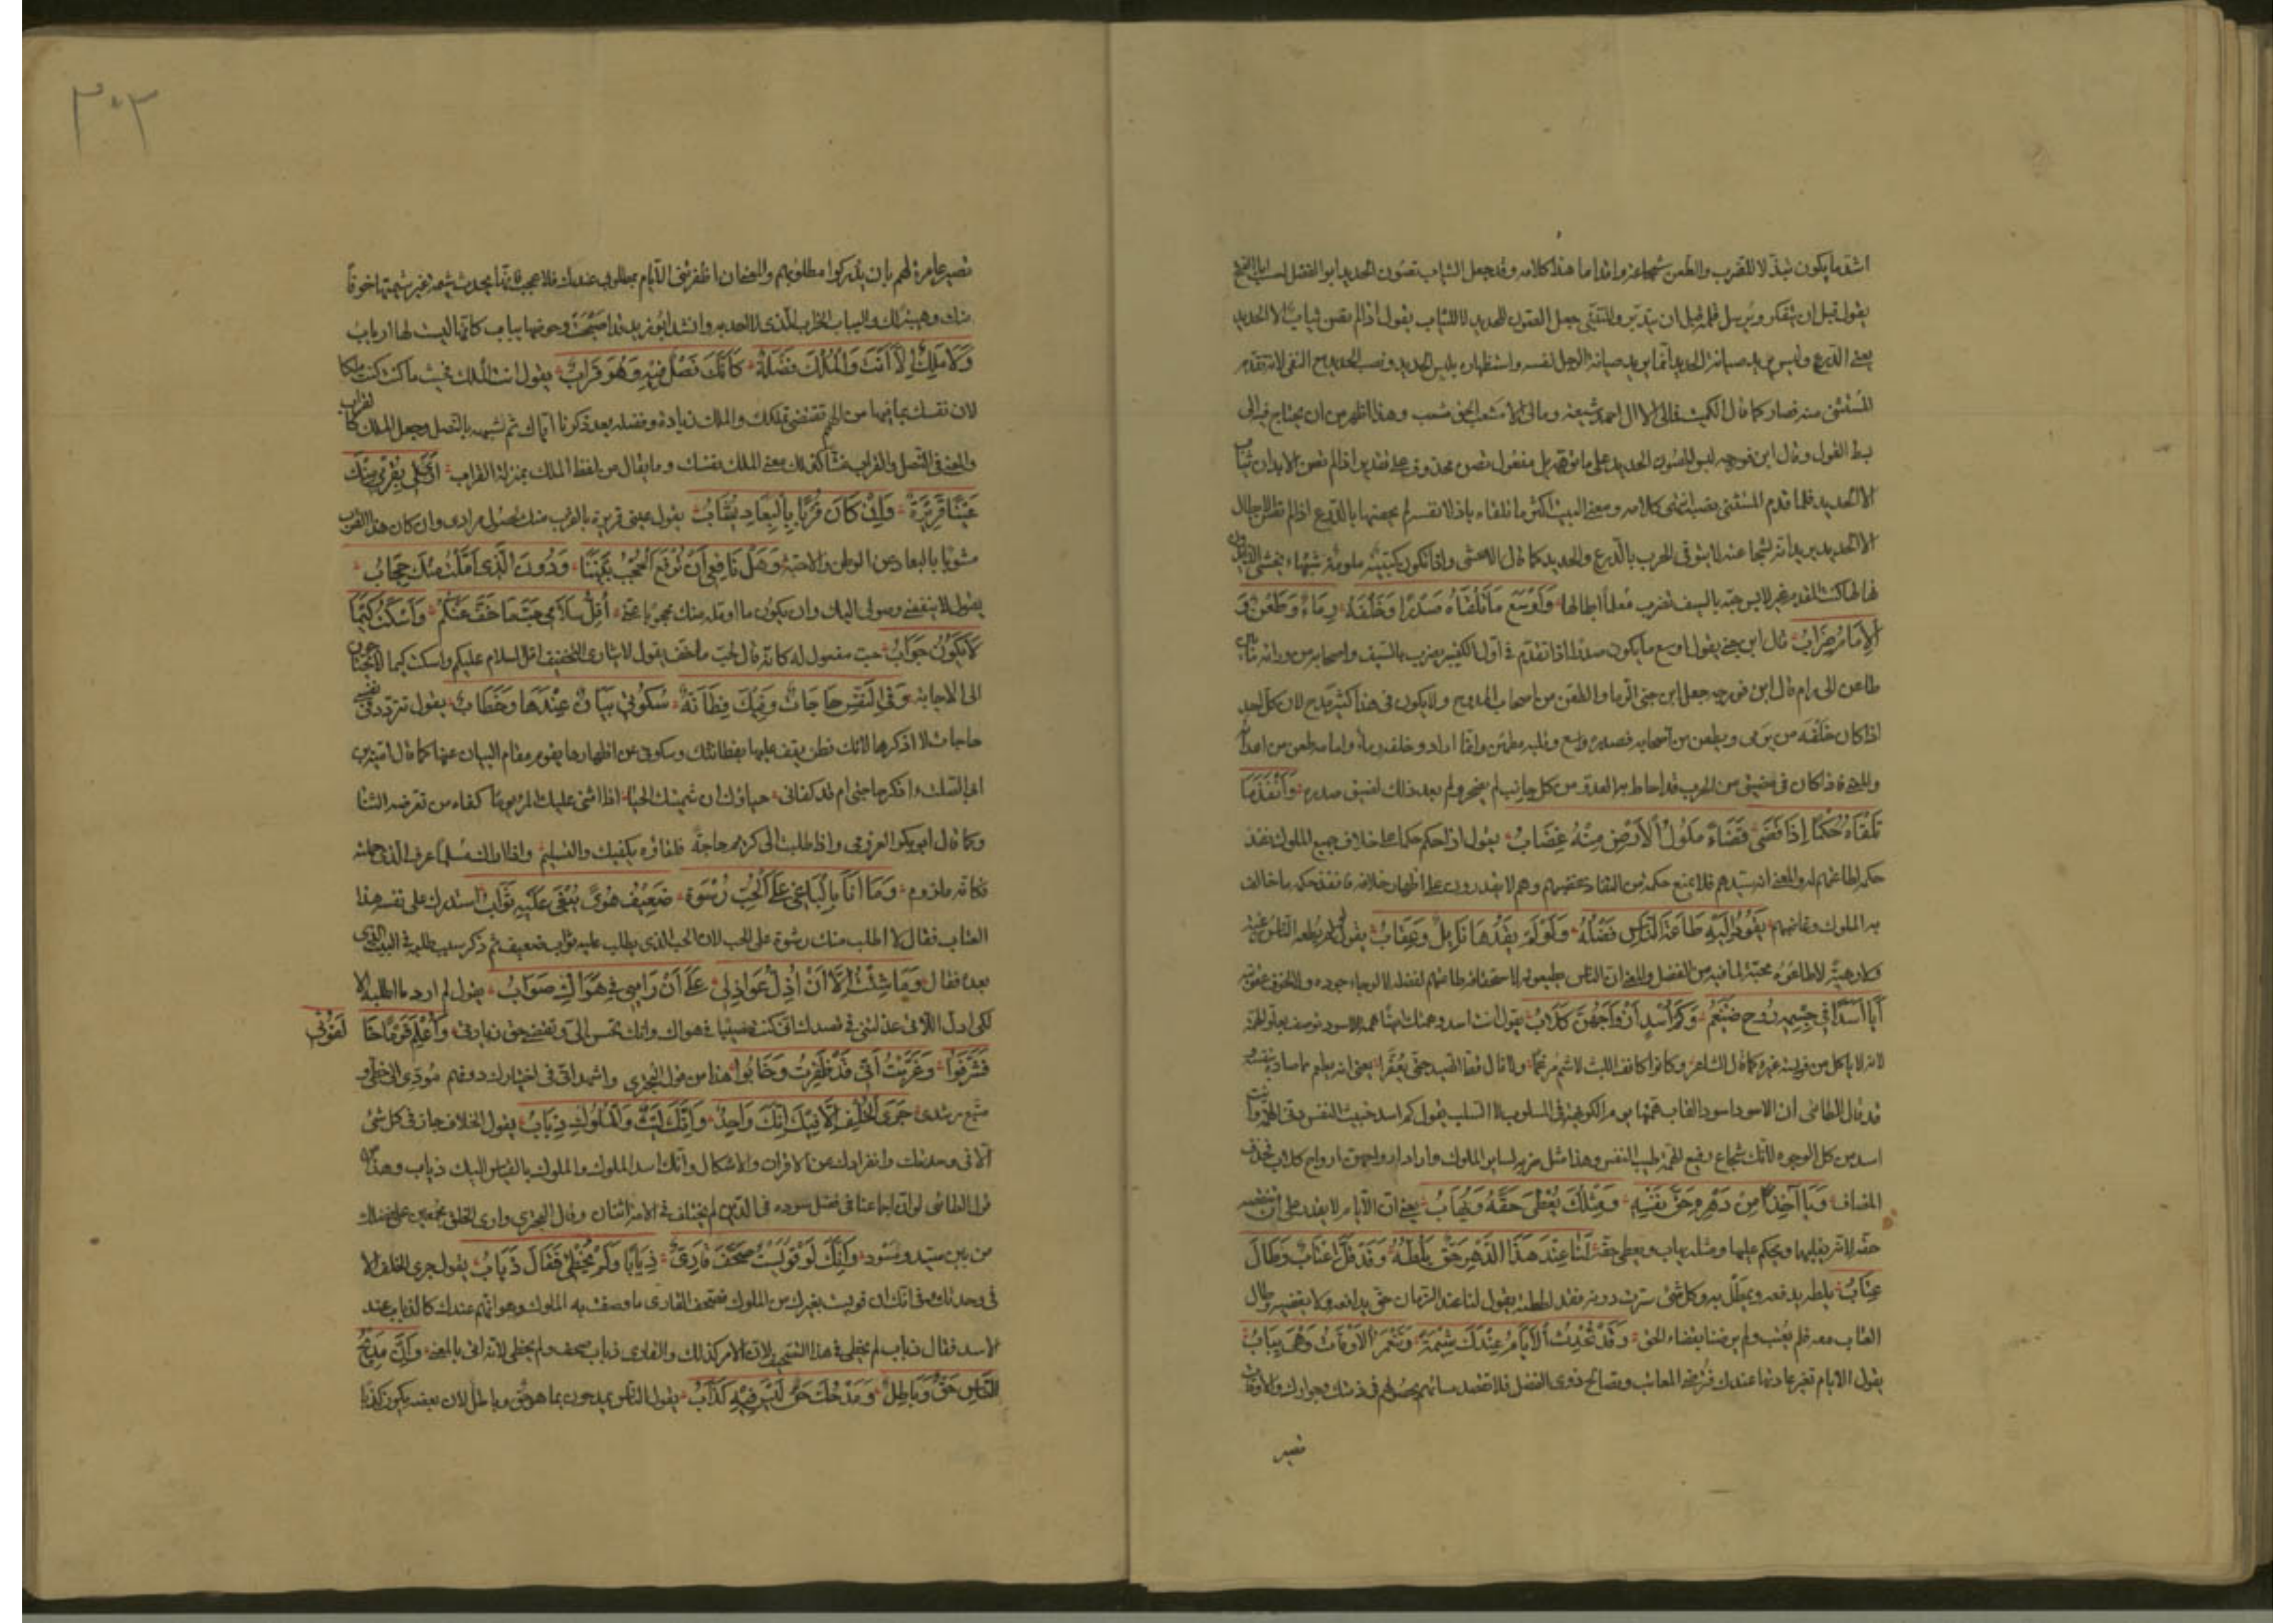 اشد ما يكون تبذلا للضرب والطعن شجاعة واقداما هذا كلامه وقد جعل الثياب تصون الحديد ابو الفضل
يقول قبل ان يتفكر ويرسل قبل ان يتدبر وللتقى جعل الصون للحديد لا للثياب يقول اذا لم تصن ثياب الا الحديد
يعني الدرع وليس يريد صيانة الحديد انما يريد صيانة الرجل لنفسه واستظهاره بلبس الحديد ونصب الحديد مع النفي لانه تقدم
المستثنى منه فصار كما قال الكميت فمالي الا ال احمد شيعة ومالي الا مشعب الحق مشعب وهذا اظهر من ان يحتاج فيه الى
بسط القول وقال ابن فورجه لبس الصون الحديد على ما توهم بل مفعول تصن محذوف على تقدير اذا لم تصن الابدان ثياب
الا الحديد فلما قدم المستثنى نصبه انتهى كلامه ومعنى البيت اكثر ما تلقاه باذلا نفسه لم يصنها بالدرع اذا لم تصن الرجال
الا الحديد يريد انه لشجاعته لا يتوقى الحرب بالدرع والحديد كما قال الاعشى واذا تكون كتيبة ملمومة شهباء يخشى
كنت المقدم غير لابس جنة بالسيف تضرب معلما ابطالها وَأَوْسَعُ مَا تَلْقَاهُ صَدْرًا وَخَلْفَهُ رِمَاءٌ وَطَعْنٌ وَ
الأَمَامَ ضِرَابُ قال ابن جني يقول اوسع ما يكون صدرا اذا تقدم في اول الكتيبة يضرب بالسيف واصحابه من ورائه
طاعن الى رام قال ابن فورجه جعل ابن جني الرما والطعن من اصحاب الممدوح ولا يكون في هذا كثير مدح لان كل احد
اذا كان خلفه من يرمي ويطعن من اصحابه فصدره واسع وقلبه مطمئن وانما اراد وخلفه رماء وامامه طعن من اعدائه
والمعنى اذا كان في مضيق من الحرب قد احاط به العدو من كل جانب لم يضجر ولم يعد ذلك لضيق صدره وَأَنْفَذُ مَا
تَلْقَاهُ حُكْمًا إِذَا قَضَى قَضَاءً مُلُوكُ الأَرْضِ مِنْهُ غِضَابُ يقول اذا حكم حكما على خلاف جميع الملوك نفذ
حكمه لطاعتهم له والمعنى انه سيدهم فلا يمنع حكمه من النفاذ غضبهم وهم لا يقدرون على اظهار خلافه فانفذ حكمه ما خالف
به الملوك وغاضبهم يَقُودُ إِلَيْهِ طَاعَةَ النَّاسِ فَضْلُهُ وَلَوْ لَمْ يَقُدْهَا نَائِلٌ وَعِقَابُ يقول لو لم يطعه الناس رغبة
ولا رهبة لاطاعوه محبة لما فيه من الفضل والمعنى ان الناس يطيعونه لاستحقاقه طاعتهم لفضله لا لرجاء جوده ولا لخوف عقوبته
أَيَا أَسَدًا فِي جِسْمِهِ رُوحُ ضَيْغَمٍ وَكَمْ أُسُدٍ أَرْوَاحُهُنَّ كِلَابُ يقول انت اسد وهمتك ايضا همة الاسود توصف بعلو الهمة
لانه لا ياكل من فريسة غيره كما قال الشاعر وكانوا كانف الليث لا شم مرغما ولا نال قط الصيد حتى يعفرا يعني انه يطعم ما صاده بنفسه
قد قال الطائي ان الاسود اسود الغاب همتها يوم الكريهة في المسلوب لا السلب يقول كم اسد خبيث النفس دني الهمة وانت
اسد من كل الوجوه لانك شجاع رفيع الهمة طيب النفس وهذا مثل ضربه لسائر الملوك واراد ارواحهن ارواح كلاب فحذف
المضاف وَيَا آخِذًا مِنْ دَهْرِهِ حَقَّ نَفْسِهِ وَمِثْلُكَ يُعْطَى حَقَّهُ وَيُهَابُ يعني ان الايام لا تقدر على ان تنقصه
حقه لانه يغلبها ويحكم عليها ومثله يهاب ويعطى حقه لَنَا عِنْدَ هَذَا الدَّهْرِ حَقٌّ يَلُطُّهُ وَقَدْ قَلَّ إِعْتَابٌ وَطَالَ
عِتَابُ يلطه يدفعه ويمطل به وكل شيء سترت دونه فقد لططته يقول لنا عند الزمان حق يدافعه ولا يقضيه وطال
العتاب معه فلم يعتب ولم يرضنا بقضاء الحق وَقَدْ تُحْدِثُ الأَيَّامُ عِنْدَكَ شِيمَةً وَتَنْعَمِرُ الأَوْقَاتُ وَهْيَ يَبَابُ
يقول الايام تغير عادتها عندك فترضي المعاتب وتصالح ذوي الفضل فلا تقصد مساءتهم لحصولهم في ذمتك وجوارك والاوقات
تصير
٣٠٣
تصير عامرة لهم بان يدركوا مطلوبهم والمعنى ان اظفرتني الايام بمطلوبي عندك فلا عجب فانها تحدث شيمة غير شيمتها خوفا
منك وهيبة لك واليباب الخراب الذي لا احد به وانشد ابو زيد قد اصبحت وحوضها يباب كانها ليست لها ارباب
وَلَا مُلْكَ إِلَّا أَنْتَ وَالْمُلْكُ فَضْلَةٌ كَأَنَّكَ نَصْلٌ فِيهِ وَهْوَ قِرَابُ يقول انت الملك حيث ما كنت كنت ملكا
لان نفسك بما فيها من الهمم تقتضي تملكك والملك زيادة وفضلة بعد ذكرنا اياك ثم شبهه بالنصل وجعل الملك كالقراب
والمعنى في النصل والقراب فشا كذلك معنى الملك نفسك وما يقال من لفظ الملك بمنزلة القراب أَرَى لِي بِقُرْبِي مِنْكَ
عَيْنًا قَرِيرَةً وَإِنْ كَانَ قُرْبًا بِالْبِعَادِ يُشَابُ يقول عيني قريرة بالقرب منك لحصول مرادي وان كان هذا القرب
مشوبا بالبعاد عن الوطن والاحبة وَهَلْ نَافِعِي أَنْ تُرْفَعَ الْحُجْبُ بَيْنَنَا وَدُونَ الَّذِي أَمَّلْتُ مِنْكَ حِجَابُ
يقول لا ينفعني وصولي اليك وان يكون ما اؤمله منك محجوبا عني أُقِلُّ سَلَامِي حُبَّ مَا خَفَّ عَنْكُمُ وَأَسْكُتُ كَيْمَا
لَا يَكُونَ جَوَابُ حب مفعول له كانه قال لحب ما خف يقول لايثاري التخفيف اقل السلام عليكم واسكت كيما لا
الى الاجابة وَفِي النَّفْسِ حَاجَاتٌ وَفِيكَ فَطَانَةٌ سُكُوتِي بَيَانٌ عِنْدَهَا وَخِطَابُ يقول تتردد في نفسي
حاجات لا اذكرها لانك فطن يقف عليها بفطانتك وسكوتي عن اظهارها يقوم مقام البيان عنها كما قال امية بن
ابي الصلت ااذكر حاجتي ام قد كفاني حياؤك ان شيمتك الحياء اذا اثنى عليك المرء يوما كفاه من تعرضه الثناء
وكما قال ابو بكر الخوارزمي واذا طلبت الى كريم حاجة فلقاؤه يكفيك والتسليم واذا راك مسلما عرف الذي حملته
فكانه ملزوم وَمَا أَنَا بِالْبَاغِي عَلَى الْحُبِّ رِشْوَةً ضَعِيفُ هَوًى يُبْغَى عَلَيْهِ ثَوَابُ استدرك على نفسه هذا
العتاب فقال لا اطلب منك رشوة على الحب لان الحب الذي يطلب عليه ثواب ضعيف ثم ذكر سبب طلبه في البيت الذي
بعده فقال وَمَا شِئْتُ إِلَّا أَنْ أُذِلَّ عَوَاذِلِي عَلَى أَنَّ رَأْيِي فِي هَوَاكَ صَوَابُ يقول لم ارد ما اطلبه الا
لكي ادل اللاتي عذلنني في قصدك اني كنت مصيبا في هواك وانك تحسن الي وتقضي حق زيارتي وَأُعْلِمَ قَوْمًا خَالَفُونِي
فَشَرَّقُوا وَغَرَّبْتُ أَنِّي قَدْ ظَفِرْتُ وَخَابُوا هذا من قول البحتري واشهد اني في اختيارك دونهم مؤدى الى حظي و
متبع رشدي جَرَى الْخُلْفُ إِلَّا فِيكَ أَنَّكَ وَاحِدٌ وَأَنَّكَ لَيْثٌ وَالْمُلُوكُ ذِئَابُ يقول الخلاف جار في كل شيء
الا في وحدتك وانفرادك عن الاقران والاشكال وانك اسد الملوك والملوك بالقياس اليك ذياب وهذا من
قول الطائي لو ان اجماعنا في فضل سودده في الدين لم يختلف في الامة اثنان وقال البحتري وارى الخلق مجمعين على فضلك
من بين سيد ومسود وَأَنَّكَ لَوْ قُويِسْتَ صَحَّفَ قَارِئٌ ذِئَابًا وَلَمْ يُخْطِئْ فَقَالَ ذُبَابُ يقول جرى الخلف الا
في وحدتك وفي انك ان قويست بغيرك من الملوك فصحف القارئ ما وصفت به الملوك وهو انهم عندك كالذياب عند
الاسد فقال ذباب لم يخطئ في هذا التصحيف لان الامر كذلك والقارئ ذياب صحف ولم يخطئ لانه اتى بالمعنى وَإِنَّ مَدِيحَ
النَّاسِ حَقٌّ وَبَاطِلٌ وَمَدْحُكَ حَقٌّ لَيْسَ فِيهِ كِذَابُ يقول الناس يمدحون بما هو حق وباطل لان بعضه يكون كذبا